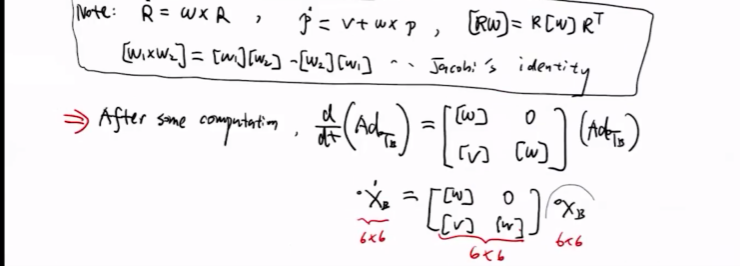 Note: Ṙ = ω × R , ṗ = v + ω × p , [Rω] = R [ω] Rᵀ
[ω₁×ω₂] = [ω₁][ω₂] - [ω₂][ω₁] ·· Jacobi's identity
⇒ After some computation , d/dt (Ad_{T_B}) = [ [ω] 0 ; [v] [ω] ] (Ad_{T_B})
°Ẋ_B = [ [ω] 0 ; [v] [ω] ] °X_B
6×6 6×6 6×6